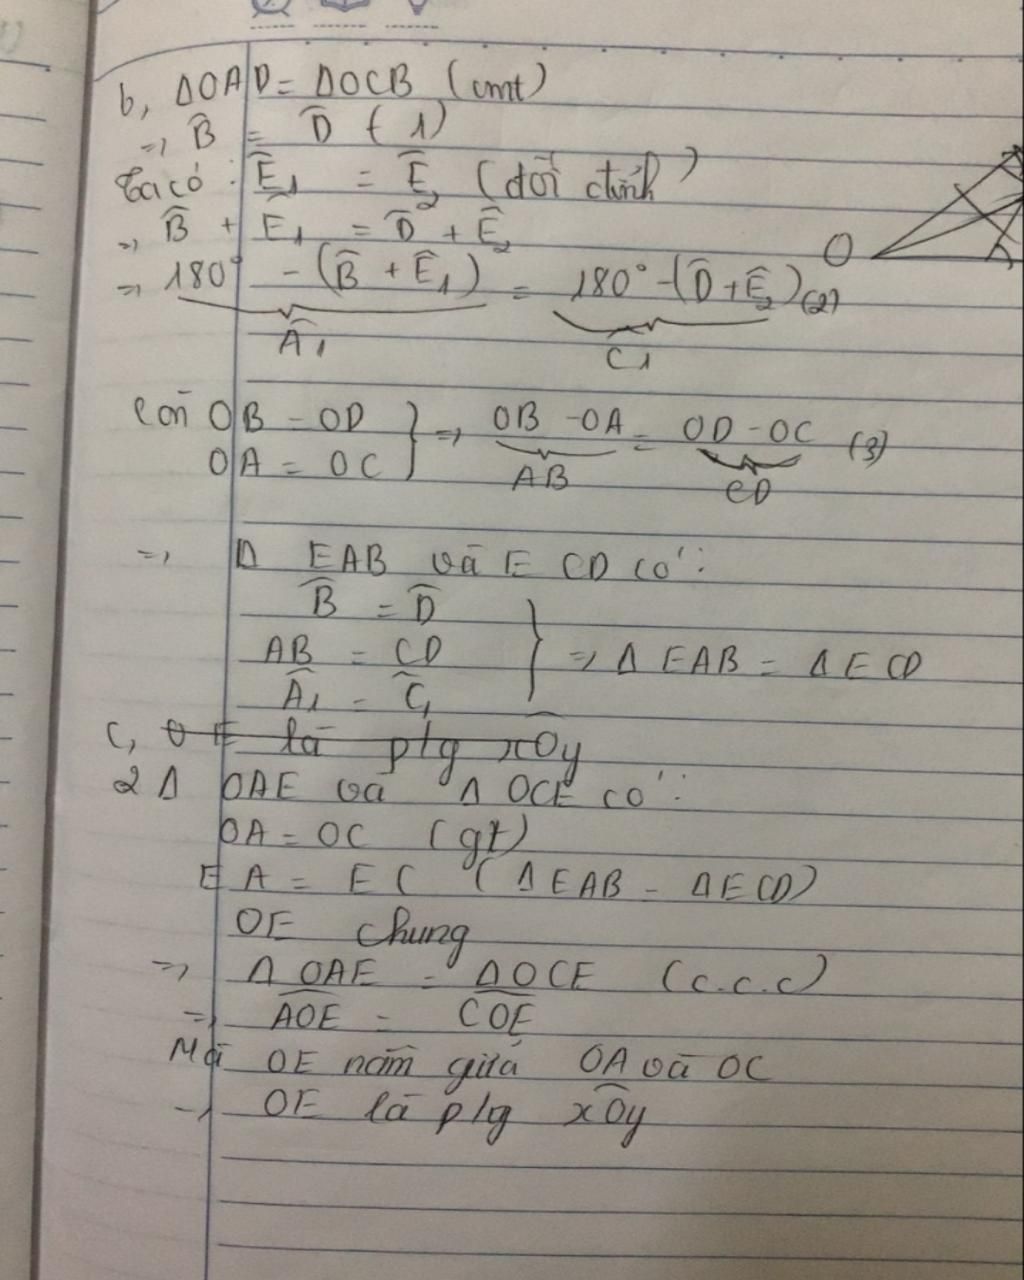 b, ΔOAD = ΔOCB (cmt)
=> B̂ = D̂ (1)
Ta có: Ê₁ = Ê₂ (đối đỉnh)
=> B̂ + Ê₁ = D̂ + Ê₂
=> 180° - (B̂ + Ê₁) = 180° - (D̂ + Ê₂) (2)
Â₁ Ĉ₁
O
Còn OB = OD } => OB - OA = OD - OC (3)
OA = OC
AB CD
=> Δ EAB và E CD có:
B̂ = D̂
AB = CD } => Δ EAB = Δ ECD
Â₁ = Ĉ₁
c, OE là p/g xOy
2 Δ OAE và Δ OCE có:
OA = OC (gt)
EA = EC (ΔEAB = ΔECD)
OE chung
=> Δ OAE = ΔOCE (c.c.c)
=> AOE = COE
Mà OE nằm giữa OA và OC
=> OE là p/g xOy